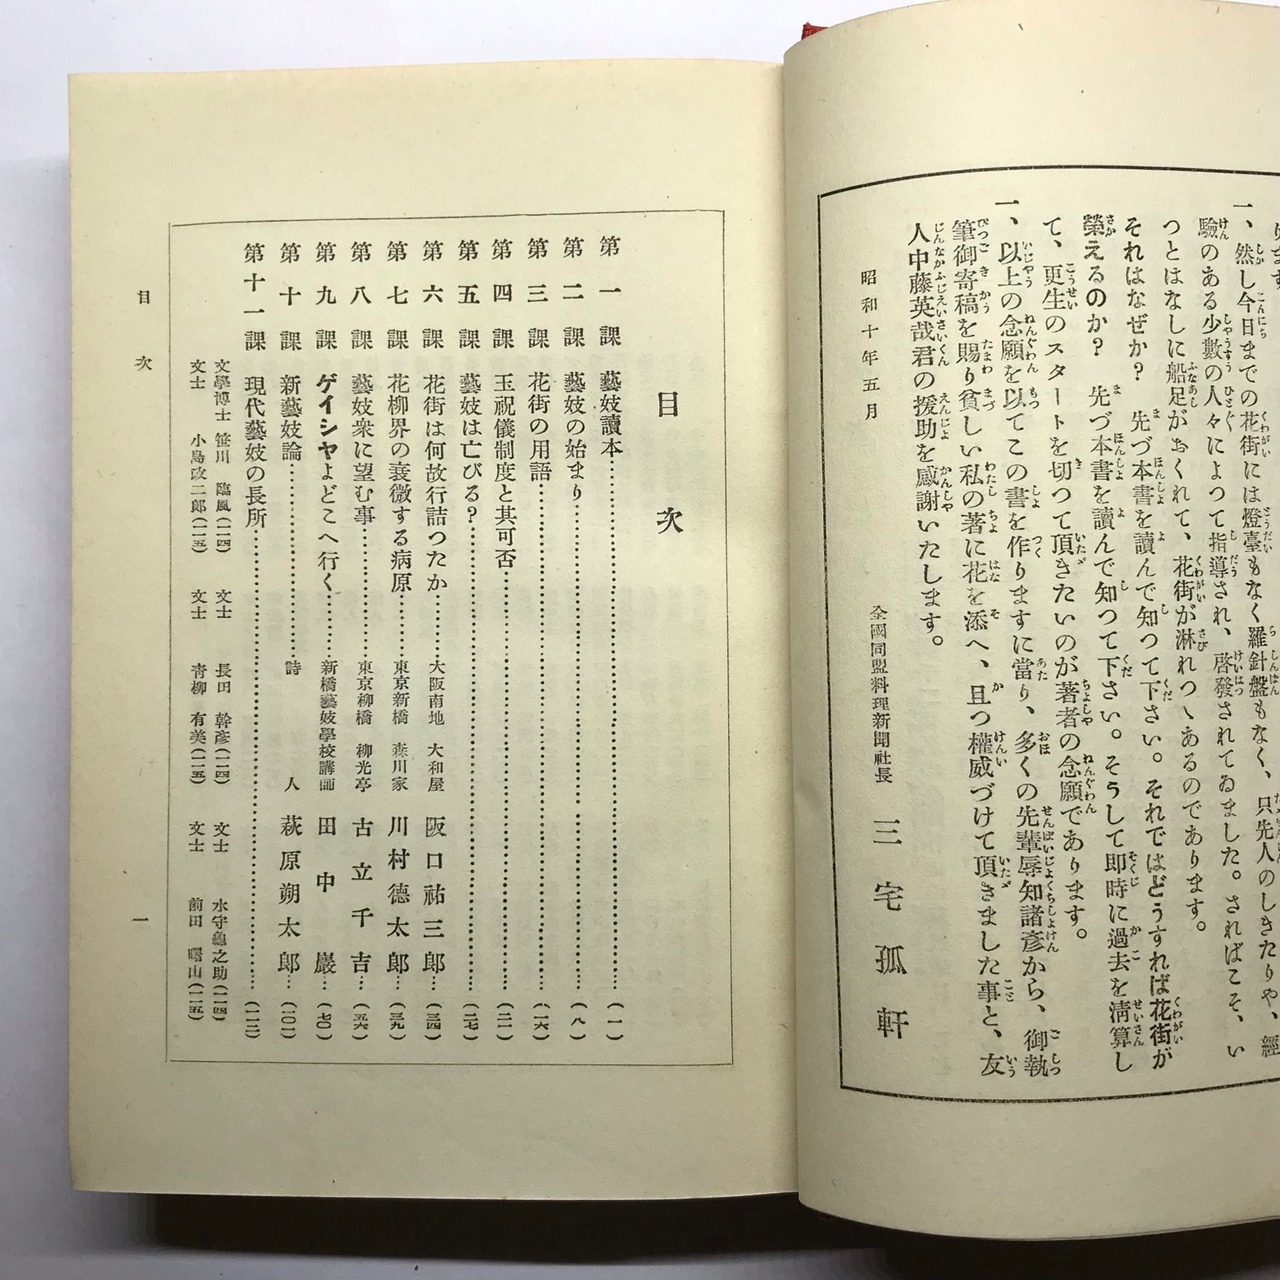 一、然し今日までの花街には燈臺もなく羅針盤もなく、只先人のしきたりや、經
驗のある少數の人々によつて指導され、啓發されてゐました。さればこそ、い
つとはなしに船足がおくれて、花街が淋れつゝあるのであります。
それはなぜか？　先づ本書を讀んで知つて下さい。それではどうすれば花街が
榮えるのか？　先づ本書を讀んで知つて下さい。そうして即時に過去を淸算し
て、更生のスタートを切つて頂きたいのが著者の念願であります。
一、以上の念願を以てこの書を作りますに當り、多くの先輩辱知諸彥から、御執
筆御寄稿を賜り貧しい私の著に花を添へ、且つ權威づけて頂きました事と、友
人中藤英哉君の援助を感謝いたします。
昭和十年五月
全國同盟料理新聞社長　三宅孤軒
目次
第一課　藝妓讀本……（一）
第二課　藝妓の始まり……（八）
第三課　花街の用語……（一六）
第四課　玉祝儀制度と其可否……（二一）
第五課　藝妓は亡びる？……（二七）
第六課　花街は何故行詰つたか……大阪南地　大和屋　阪口祐三郎…（三四）
第七課　花柳界の衰微する病原……東京新橋　森川家　川村德太郎…（三九）
第八課　藝妓衆に望む事……東京柳橋　柳光亭　古立千吉…（五六）
第九課　ゲイシヤよどこへ行く……新橋藝妓學校講師　田中巖…（七〇）
第十課　新藝妓論……詩人　萩原朔太郎…（一〇一）
第十一課　現代藝妓の長所……（一一三）
文學博士　笹川臨風（一一四）　文士　長田幹彥（一一四）　文士　水守龜之助（一一四）
文士　小島政二郎（一一五）　文士　靑柳有美（一一五）　文士　前田曙山（一一五）
目次　一